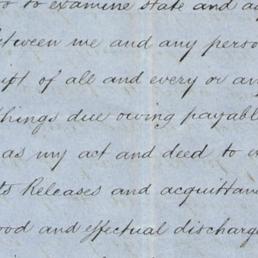 to examine state and
between me and any perso
ipt of all and every or any
things due owing payabl
as my act and deed to
ts Releases and acquittan
ood and effectual discharg